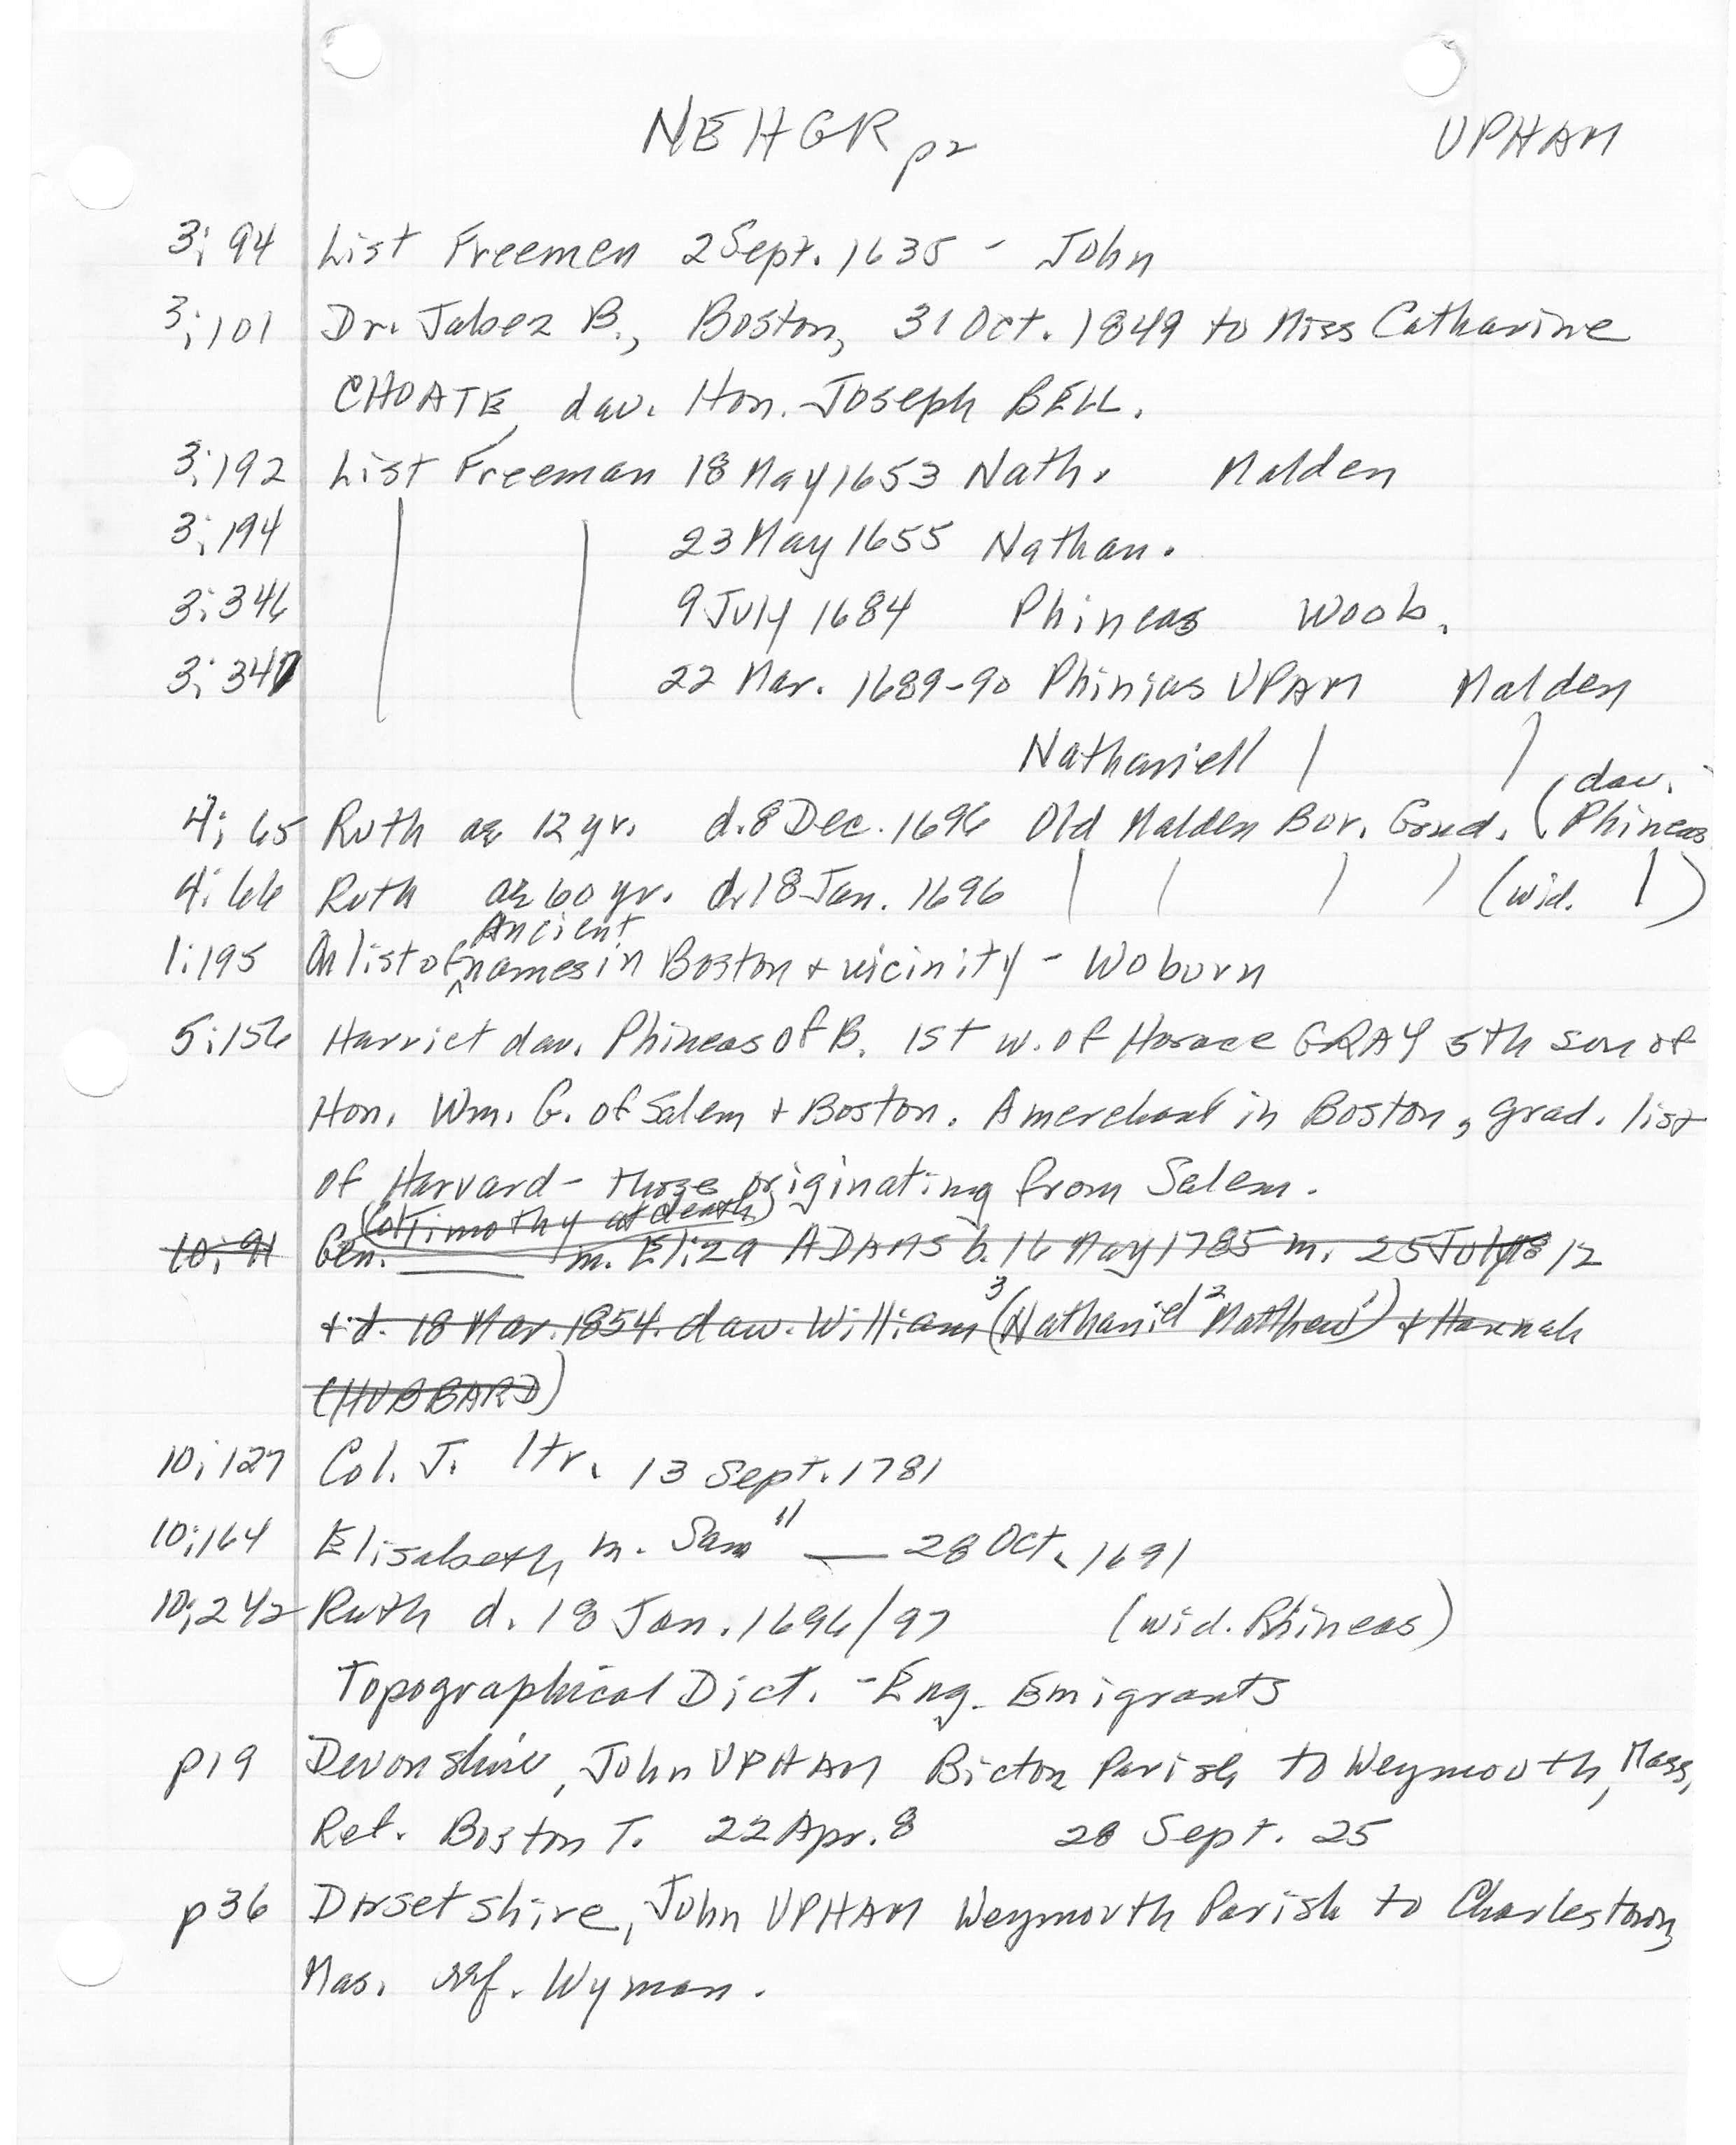 NEHGR p2 UPHAM
3:94 List Freemen 2 Sept. 1635 - John
3:101 Dr. Jabez B., Boston, 31 Oct. 1849 to Miss Catharine
CHOATE, dau. Hon. Joseph BELL.
3:192 List Freeman 18 May 1653 Nath. Malden
3:194 | | 23 May 1655 Nathan.
3:346 | | 9 July 1684 Phineas Woob.
3:347 | | 22 Mar. 1689-90 Phinias UPAM Malden
Nathaniell | |
4:65 Ruth ae 12 yr. d. 8 Dec. 1696 Old Malden Bur. Grnd. (dau. Phineas
4:66 Ruth ae 60 yr. d. 18 Jan. 1696 | | | | (wid. | )
1:195 On list of ^Ancient names in Boston + vicinity - Woburn
5:156 Harriet dau. Phineas of B. 1st w. of Horace GRAY 5th son of
Hon. Wm. G. of Salem + Boston. A merchant in Boston, grad. list
of Harvard - those originating from Salem.
(Col Timothy at death)
10:91 Gen. ____ m. Eliza ADAMS b. 16 May 1785 m. 25 July 1812
+ d. 18 Mar. 1854. dau. William³ (Nathaniel² Matthew¹) + Hannah
(HUBBARD)
10:127 Col. J. ltr. 13 Sept. 1781
10:164 Elisabeth m. Sam'll ___ 28 Oct. 1691
10:242 Ruth d. 18 Jan. 1696/97 (wid. Phineas)
Topographical Dict. - Eng. Emigrants
p19 Devonshire, John UPHAM Bicton Parish to Weymouth, Mass,
Ref. Boston T. 22 Apr. 8 28 Sept. 25
p36 Dorsetshire, John UPHAM Weymouth Parish to Charlestown,
Mas. ref. Wyman.